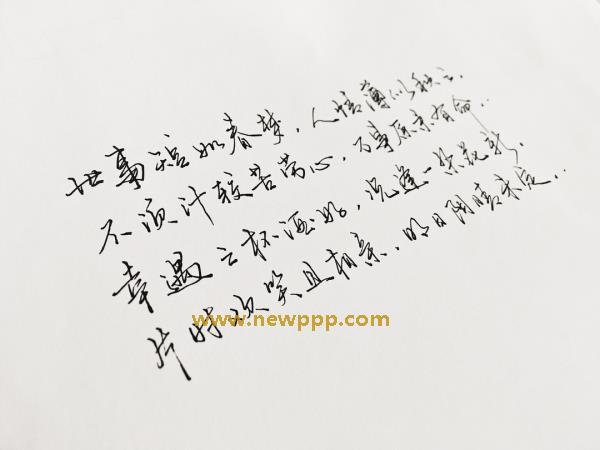 世事短如春梦，人情薄似秋云.
不须计较苦劳心，万事原来有命..
幸遇三杯酒好，况逢一朵花新.
片时欢笑且相亲，明日阴晴未定..
www.newppp.com